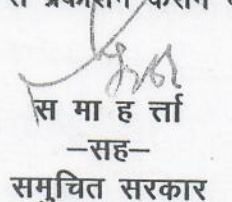 स मा ह र्त्ता
—सह—
समुचित सरकार